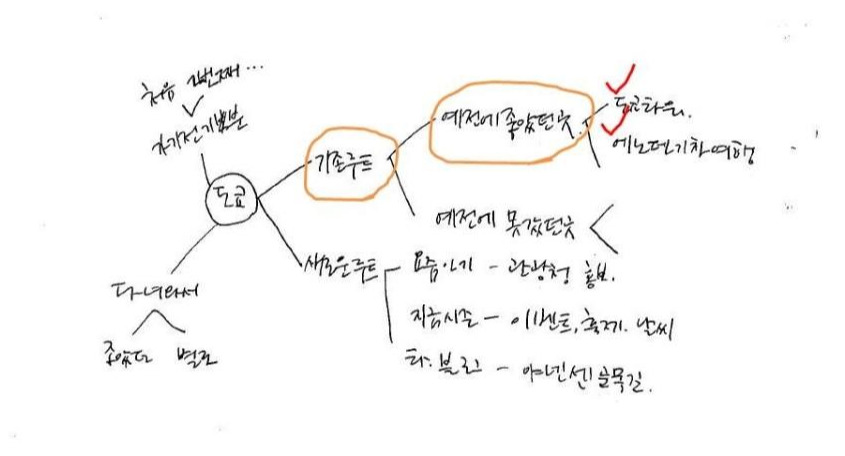 처음 2번째...
가기전기분
도쿄
기존루트
예전에좋았던곳
도쿄타워.
에노덴기차여행
예전에 못갔던곳
새로운루트
요즘인기 - 관광청 홍보.
지금시즌 - 이벤트, 축제. 날씨
타.블로그 - 야넨센골목길.
다녀와서
좋았다 별로